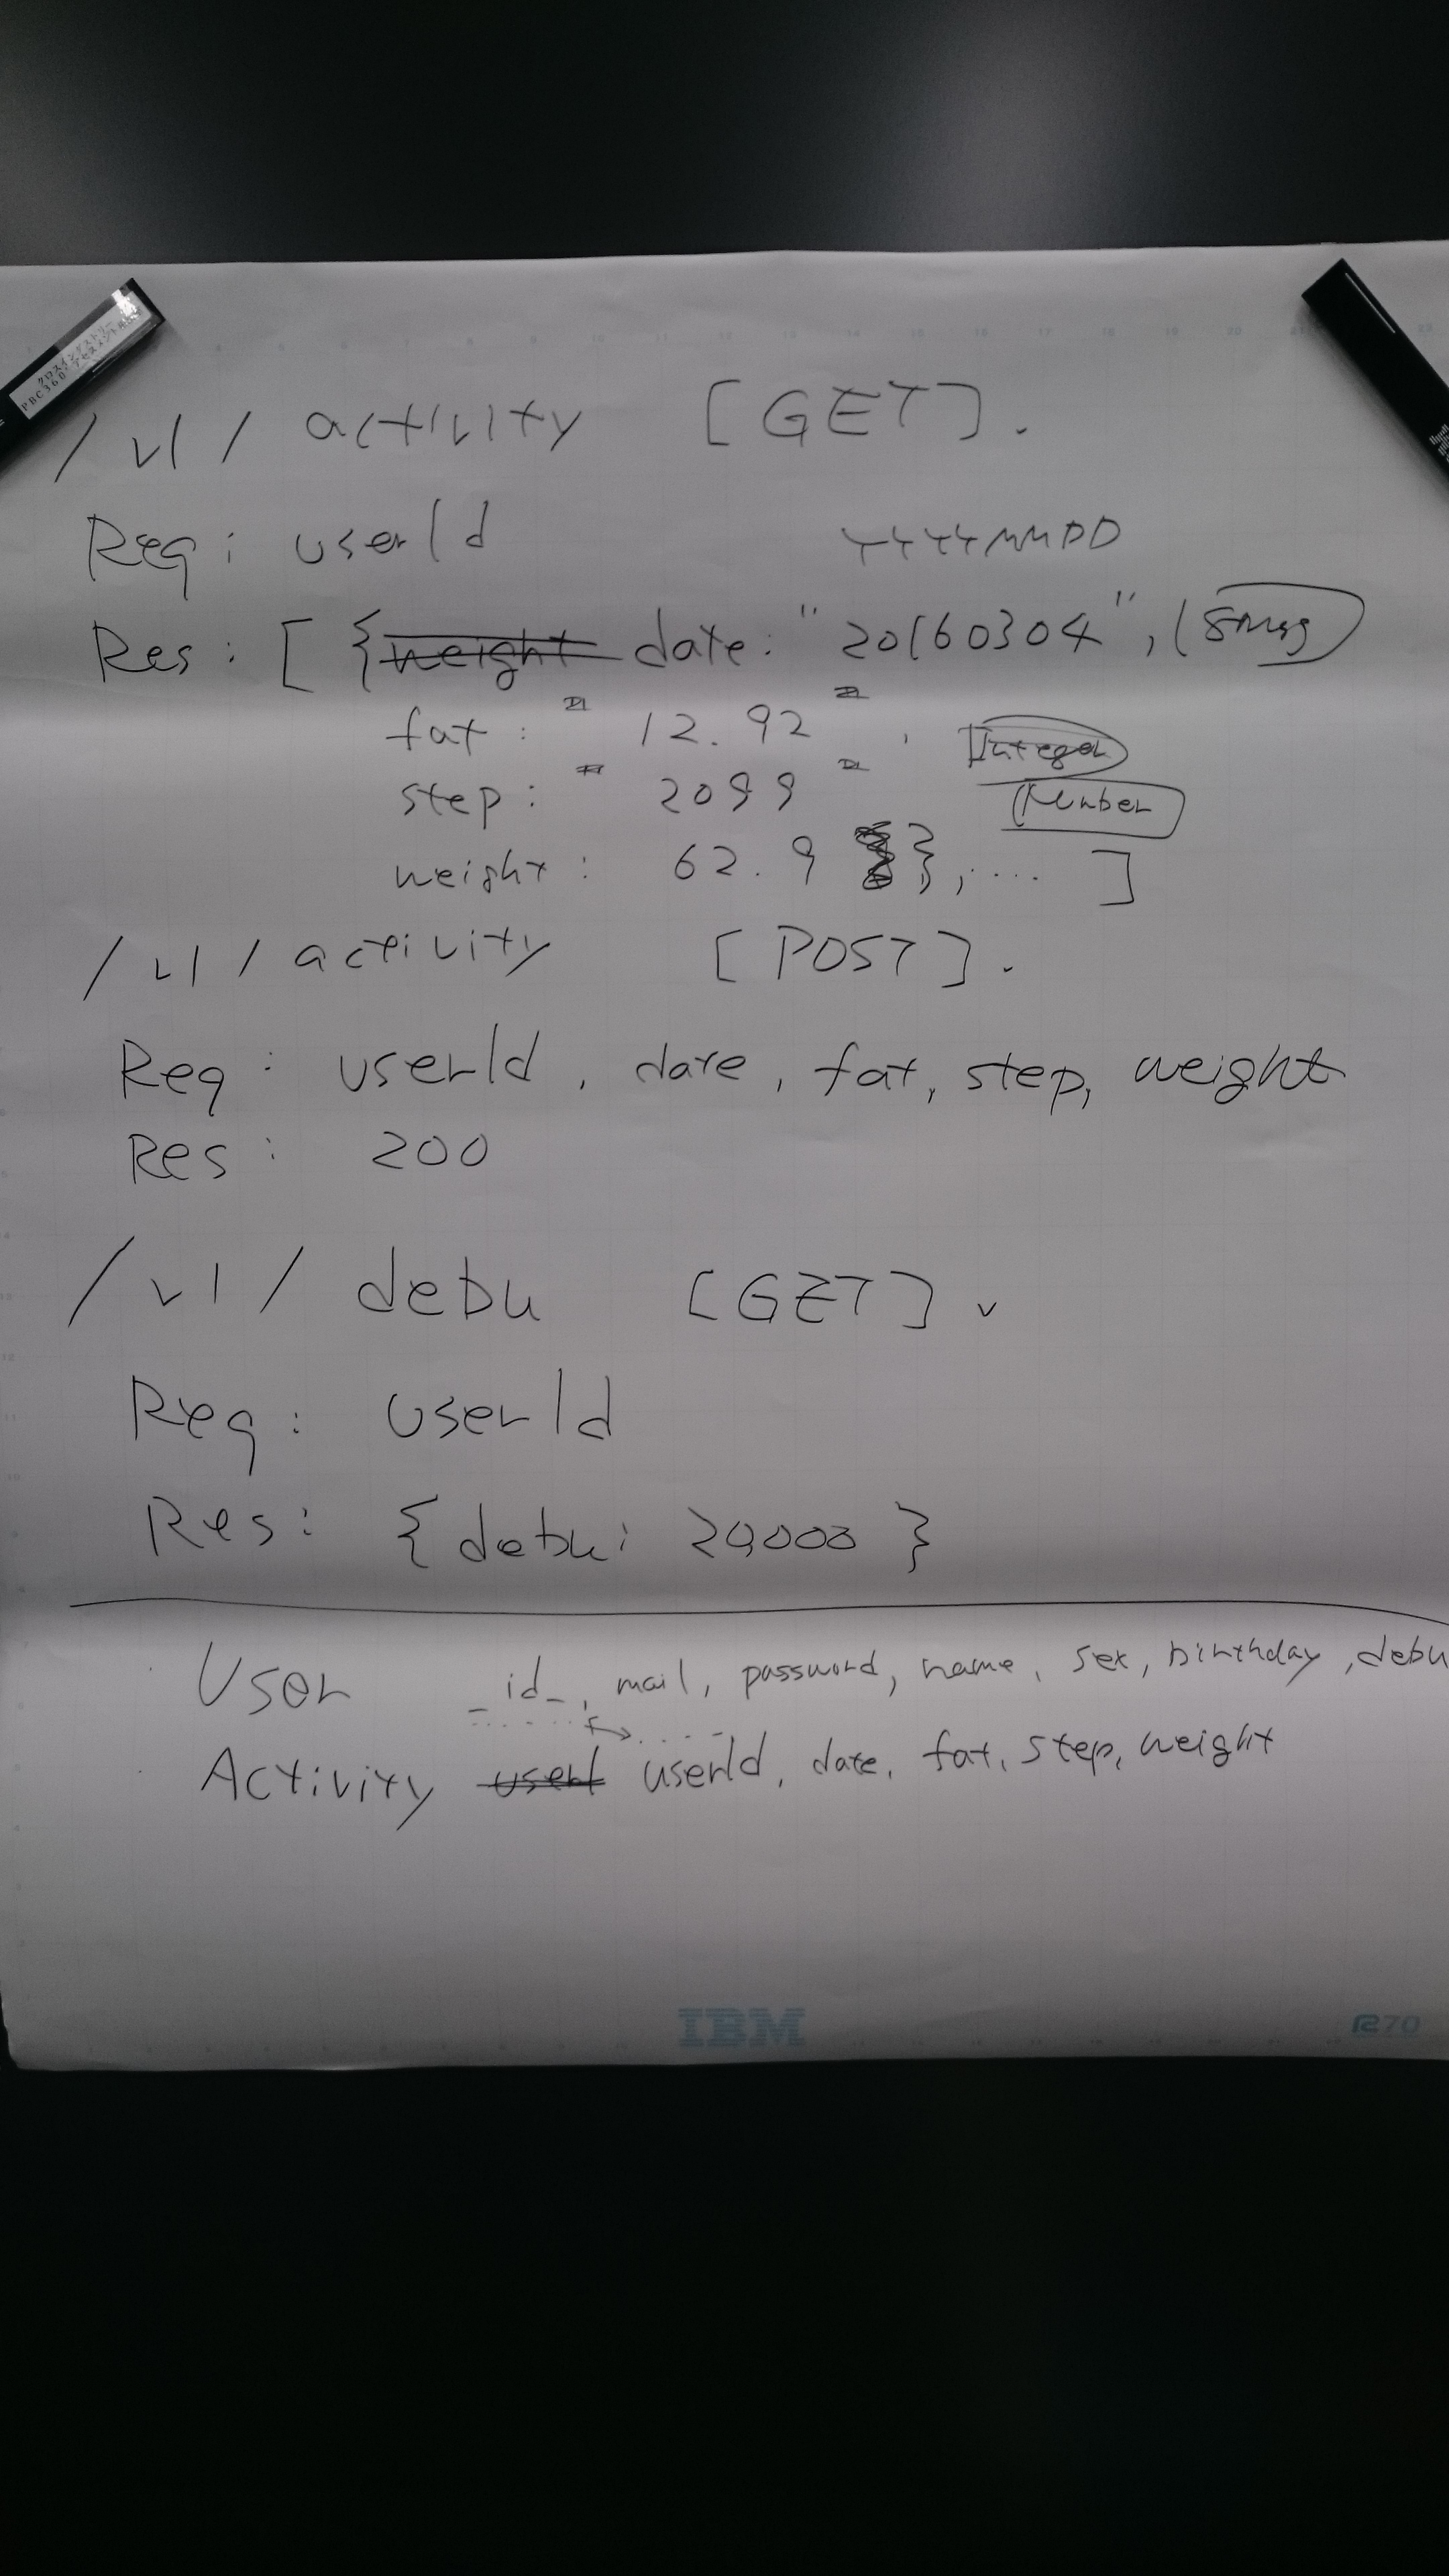 クロスインダストリー
PBC360・アセスメント
/ v1 / activity [GET].
Req: userId YYYYMMDD
Res: [ {weight date: "20160304",
fat: "12.92", Integer
step: "2099" Number
weight: 62.9 }, ... ]
/ v1 / activity [POST].
Req: userId, date, fat, step, weight
Res: 200
/ v1 / debu [GET].
Req: userId
Res: {debu: 20,000 }
User _id_, mail, password, name, sex, birthday, debu
Activity user userId, date, fat, step, weight
IBM
R70